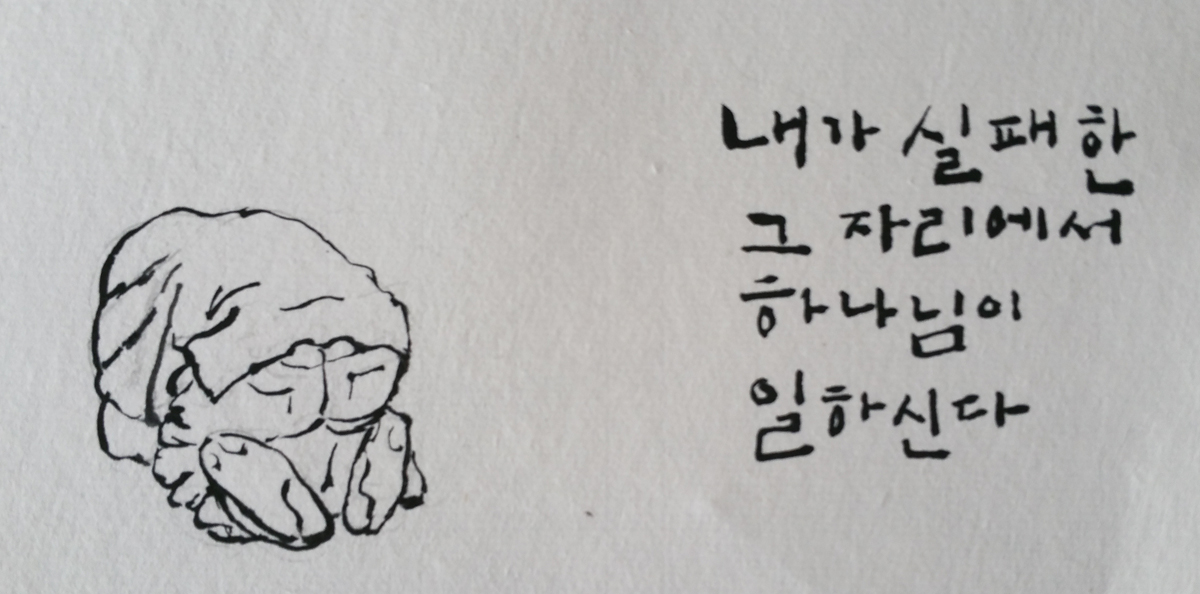 내가 실패한
그 자리에서
하나님이
일하신다